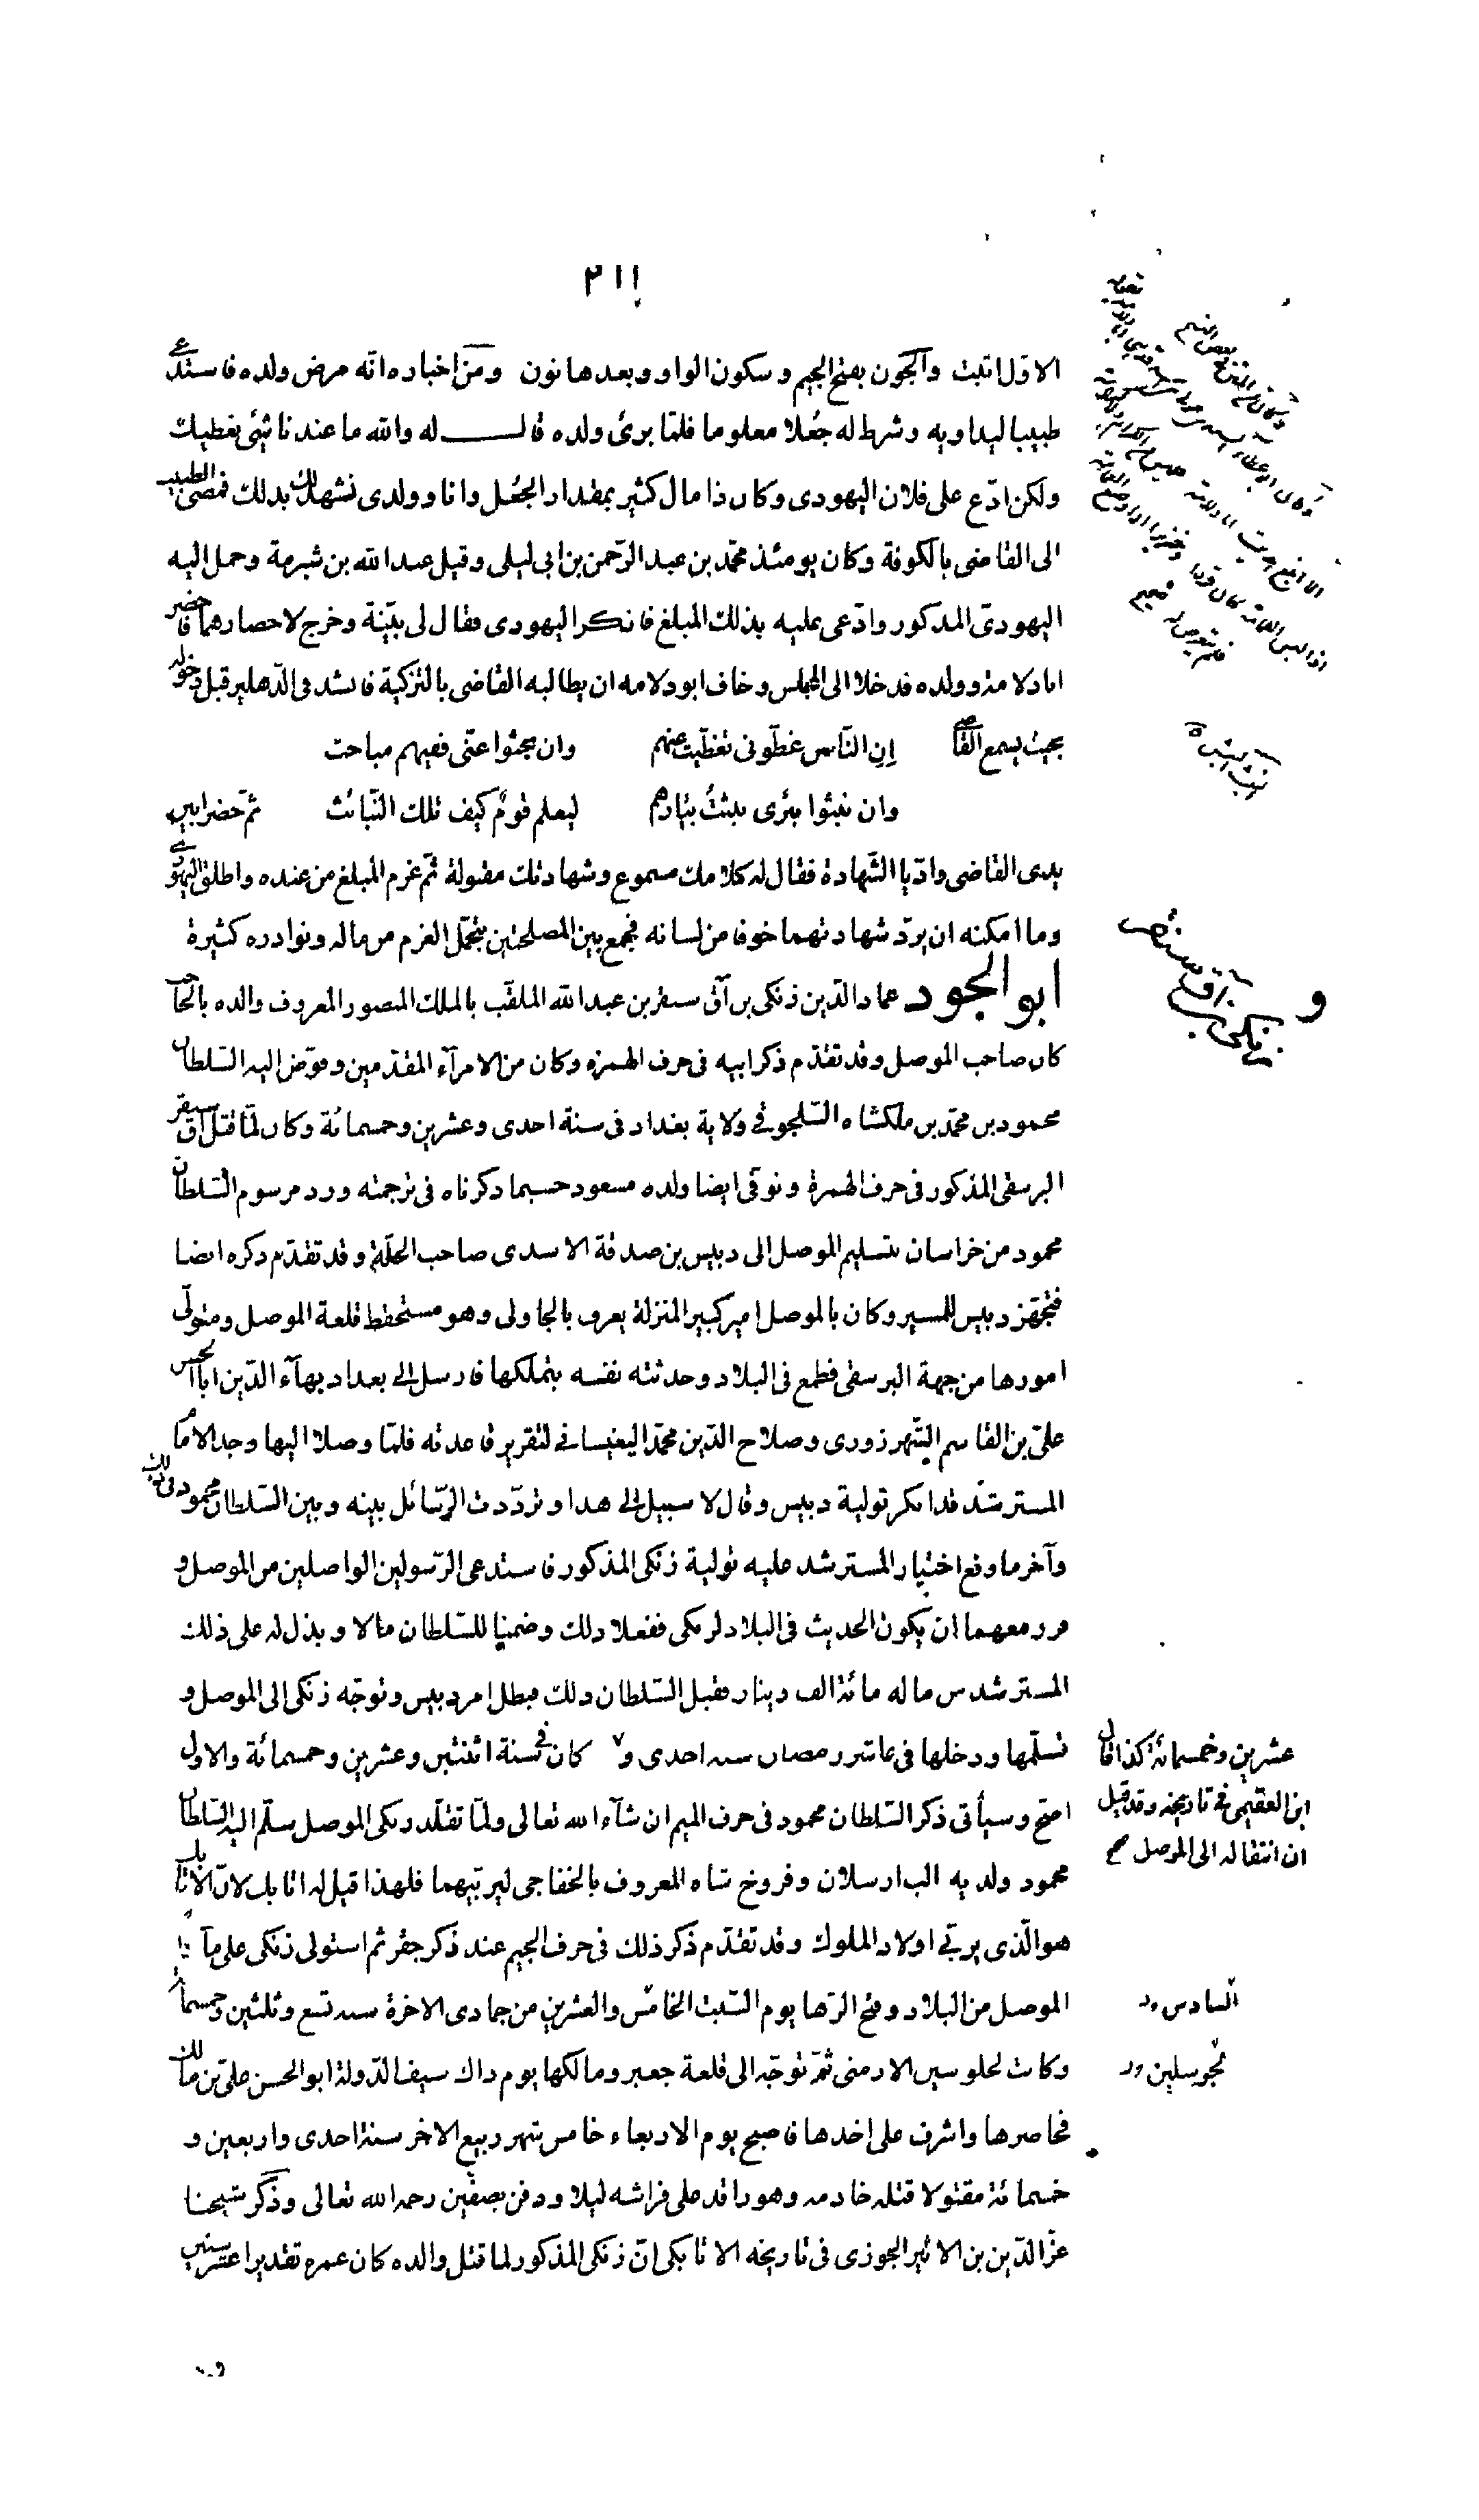 ٢١١
الاوّل اثبت والجون بفتح الجيم وسكون الواو وبعدها نون ومن اخباره انّه مرض ولده فاستدعى
طبيبا ليداويه وشرط له جُعلا معلوما فلمّا برئ ولده قال له والله ما عندنا شئ نعطيك
ولكن ادّع على فلان اليهودى وكان ذا مال كثير بمقدار الجُعل وانا وولدى نشهد لك بذلك فمضى الطبيب
الى القاضى بالكوفة وكان يومئذ محمّد بن عبد الرّحمن بن ابى ليلى وقيل عبد الله بن شبرمة وحمل اليه
اليهودىّ المذكور وادّعى عليه بذلك المبلغ فانكر اليهودى فقال لى بيّنة وخرج لاحضارهما فاحضر
ابا دلامة وولده فدخلا الى المجلس وخاف ابو دلامه ان يطالبه القاضى بالتزكية فانشد فى الدّهليز قبل دخوله
بحيث يسمع القاضى اِن النّاس غطّونى تغطّيت عنهم وان بحثوا عنّى ففيهم مباحث
وان نبثوا بئرى نبثتُ بئارهم ليعلم قومٌ كيف تلك النّبائث ثمّ حضرا بين
يدى القاضى وادّيا الشّهادة فقال له كلامك مسموع وشهادتك مقبولة ثمّ غرم المبلغ من عنده واطلق اليهودى
وما امكنه ان يردّ شهادتهما خوفا من لسانه فجمع بين المصلحتين بتحمّل الغرم من ماله ونوادره كثيرة
ابو الجود عماد الدّين زنكى بن آق سنقر بن عبد الله الملقّب بالملك المنصور المعروف والده بالحاجب
كان صاحب الموصل وقد تقدّم ذكر ابيه فى حرف الهمزه وكان من الامرآء المقدّمين وفوّض اليه السّلطان
محمود بن محمّد بن ملكشاه السّلجوقى ولاية بغداد فى سنة احدى وعشرين وخمسمائة وكان لمّا قتل آق سنقر
البرسقى المذكور فى حرف الهمزة وتوفّى ايضا ولده مسعود حسبما ذكرناه فى ترجمته ورد مرسوم السّلطان
محمود من خراسان بتسليم الموصل الى دبيس بن صدقة الاسدى صاحب الحلّة وقد تقدّم ذكره ايضا
فتجهّز دبيس للمسير وكان بالموصل امير كبير المنزلة يعرف بالجاولى وهو مستحفظ قلعة الموصل ومتولّى
امورها من جهة البرسقى فطمع فى البلاد وحدثته نفسه بتملكها فارسل الى بغداد بهآء الدّين ابا الحسن
علىّ بن القاسم الشّهرزورى وصلاح الدّين محمّد اليغيسانى لتقرير قاعدته فلمّا وصلا اليها وجدا الامام
المسترشد قد انكر تولية دبيس وقال لا سبيل الى هذا وتردّدت الرّسائل بينه وبين السّلطان محمود فى ذلك
وآخر ما وقع اختيار المسترشد عليه تولية زنكى المذكور فاستدعى الرّسولين الواصلين من الموصل و
قرر معهما ان يكون الحديث فى البلاد لزنكى ففعلا ذلك وضمنا للسّلطان مالا وبذل له على ذلك
المسترشد من ماله مائة الف دينار فقبل السّلطان ذلك فبطل امر دبيس وتوجّه زنكى الى الموصل و
تسلّمها ودخلها فى عاشر رمضان سنه احدى و٧ كان فى سنة اثنتين وعشرين وخمسمائة والاول
اصحّ وسيأتى ذكر السّلطان محمود فى حرف الميم ان شآء الله تعالى ولمّا تقلّد زنكى الموصل سلّم اليه السّلطان
محمود ولديه الب ارسلان وفروخ شاه المعروف بالخفاجى ليربّيهما فلهذا قيل له اتابك لانّ الاتابك
هو الّذى يربّى اولاد الملوك وقد تقدّم ذكر ذلك فى حرف الجيم عند ذكر جقر ثم استولى زنكى على ما
الموصل من البلاد وفتح الرّها يوم السّبت الخامس والعشرين من جمادى الاخرة سنه تسع وثلثين وخمسمائة
وكانت لجلوسين الارمنى ثمّ توجّه الى قلعة جعبر ومالكها يوم ذاك سيف الدّولة ابو الحسن علىّ بن مالك
فحاصرها واشرف على اخذها فاصبح يوم الاربعاء خامس شهر ربيع الاخر سنة احدى واربعين و
خمسمائة مقتولا قتله خادمه وهو راقد على فراشه ليلا ودفن بصفّين رحمه الله تعالى وذكر شيخنا
عزّ الدّين بن الاثير الجوزى فى تاريخه الاتابكى انّ زنكى المذكور لما قتل والده كان عمره تقديرا عشر سنين
زنكى بن آق سنقر
عشرين وخمسمائة كذا قال
ابن العقيمى فى تاريخه وقد قيل
ان انتقاله الى الموصل صح
السادس
لجوسلين